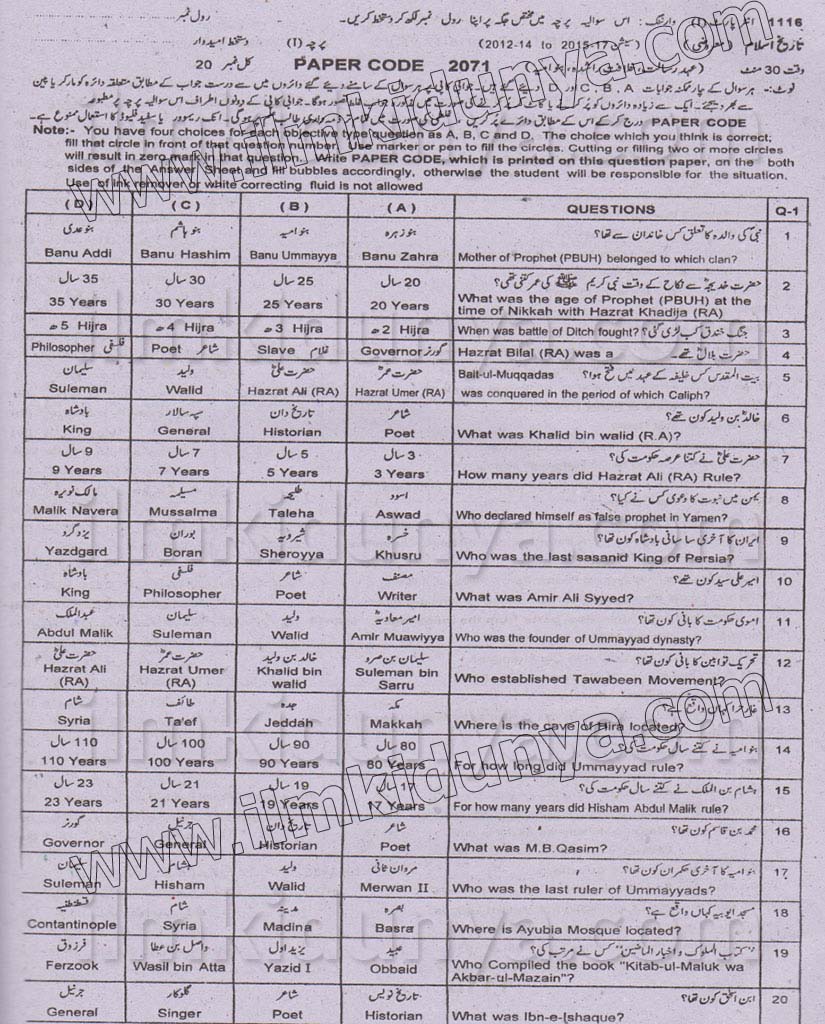 1116 انٹر پارٹ (I) وارننگ: اس سوالیہ پرچہ میں مختص جگہ پر اپنا رول نمبر لکھ کر دستخط کریں۔ رول نمبر
تاریخ اسلام (معروضی) (سیشن 17-2015 to 2012-14) پرچہ (I) دستخط امیدوار
وقت 30 منٹ PAPER CODE 2071 کل نمبر 20
PAPER CODE
Note:- You have four choices for each objective type question as A, B, C and D. The choice which you think is correct;
fill that circle in front of that question number. Use marker or pen to fill the circles. Cutting or filling two or more circles
will result in zero mark in that question. Write PAPER CODE, which is printed on this question paper, on the both
sides of the Answer Sheet and fill bubbles accordingly, otherwise the student will be responsible for the situation.
Use of ink remover or white correcting fluid is not allowed
(D) (C) (B) (A) QUESTIONS Q-1
بنو عدی بنو ہاشم بنو امیہ بنو زہرہ نبیؐ کی والدہ کا تعلق کس خاندان سے تھا؟ 1
Banu Addi Banu Hashim Banu Ummayya Banu Zahra Mother of Prophet (PBUH) belonged to which clan?
35 سال 30 سال 25 سال 20 سال حضرت خدیجہؓ سے نکاح کے وقت نبی کریم ﷺ کی عمر کتنی تھی؟ 2
35 Years 30 Years 25 Years 20 Years What was the age of Prophet (PBUH) at the
time of Nikkah with Hazrat Khadija (RA)
5 ھ Hijra 4 ھ Hijra 3 ھ Hijra 2 ھ Hijra When was battle of Ditch fought? جنگ خندق کب لڑی گئی؟ 3
Philosopher فلسفی Poet شاعر Slave غلام Governor گورنر Hazrat Bilal (RA) was a حضرت بلالؓ تھے۔ 4
سلیمان ولید حضرت علیؓ حضرت عمرؓ Bait-ul-Muqqadas بیت المقدس کس خلیفہ کے عہد میں فتح ہوا؟ 5
Suleman Walid Hazrat Ali (RA) Hazrat Umer (RA) was conquered in the period of which Caliph?
بادشاہ سپہ سالار تاریخ دان شاعر خالدؓ بن ولید کون تھے؟ 6
King General Historian Poet What was Khalid bin walid (R.A)?
9 سال 7 سال 5 سال 3 سال حضرت علیؓ نے کتنا عرصہ حکومت کی؟ 7
9 Years 7 Years 5 Years 3 Years How many years did Hazrat Ali (RA) Rule?
مالک نویرہ مسیلمہ طلیحہ اسود یمن میں نبوت کا دعویٰ کس نے کیا؟ 8
Malik Navera Mussalma Taleha Aswad Who declared himself as false prophet in Yamen?
یزدگرد بوران شیرویہ خسرہ ایران کا آخری ساسانی بادشاہ کون تھا؟ 9
Yazdgard Boran Sheroyya Khusru Who was the last sasanid King of Persia?
بادشاہ فلسفی شاعر مصنف امیر علی سید کون تھے؟ 10
King Philosopher Poet Writer What was Amir Ali Syyed?
عبدالملک سلیمان ولید امیر معاویہؓ اموی حکومت کا بانی کون تھا؟ 11
Abdul Malik Suleman Walid Amir Muawiyya Who was the founder of Ummayyad dynasty?
حضرت علیؓ حضرت عمرؓ خالد بن ولید سلیمان بن صرو تحریک توابین کا بانی کون تھا؟ 12
Hazrat Ali (RA) Hazrat Umer (RA) Khalid bin walid Suleman bin Sarru Who established Tawabeen Movement?
شام طائف جدہ مکہ غار حرا کہاں واقع ہے؟ 13
Syria Ta'ef Jeddah Makkah Where is the cave of Hira located?
110 سال 100 سال 90 سال 80 سال بنو امیہ نے کتنے سال حکومت کی؟ 14
110 Years 100 Years 90 Years 80 Years For how long did Ummayyad rule?
23 سال 21 سال 19 سال 17 سال ہشام بن الملک نے کتنے سال حکومت کی؟ 15
23 Years 21 Years 19 Years 17 Years For how many years did Hisham Abdul Malik rule?
گورنر جرنیل تاریخ دان شاعر محمد بن قاسم کون تھا؟ 16
Governor General Historian Poet What was M.B.Qasim?
سلیمان ہشام ولید مروان ثانی بنو امیہ کا آخری حکمران کون تھا؟ 17
Suleman Hisham Walid Merwan II Who was the last ruler of Ummayyads?
قسطنطنیہ شام مدینہ بصرہ مسجد ایوبیہ کہاں واقع ہے؟ 18
Contantinople Syria Madina Basra Where is Ayubia Mosque located?
فرزوق واصل بن عطا یزید اول عبید "کتاب الملوک و اخبار الماضین" کس نے مرتب کی؟ 19
Ferzook Wasil bin Atta Yazid I Obbaid Who Compiled the book "Kitab-ul-Maluk wa
Akbar-ul-Mazain"?
جرنیل گلوکار شاعر تاریخ نویس ابن اسحٰق کون تھا؟ 20
General Singer Poet Historian What was Ibn-e-Ishaque?
www.ilmkidunya.com
www.ilmkidunya.com
ilmkidunya.com
ilmkidunya.com
ilmkidunya.com
ilmkidunya.com